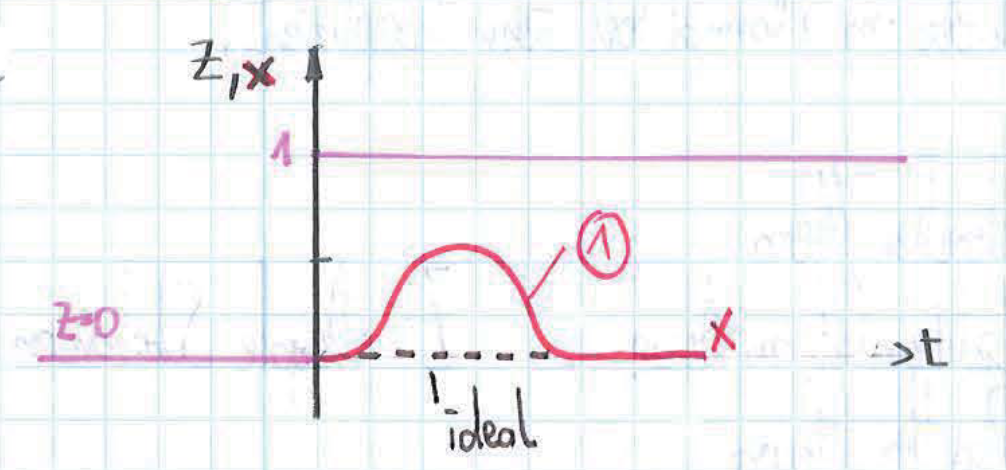 Z, x
1
①
Z=0
x
t
ideal